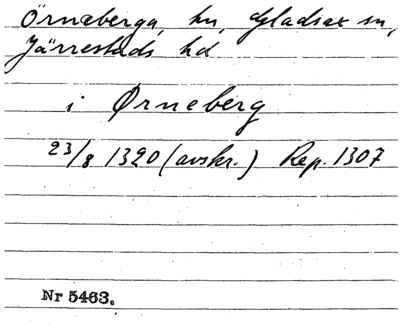 Örneberga, hn, Gladsax sn,
Järrestads hd
i Ørneberg
23/8 1320 (avskr.) Rep. 1307
Nr 5463.